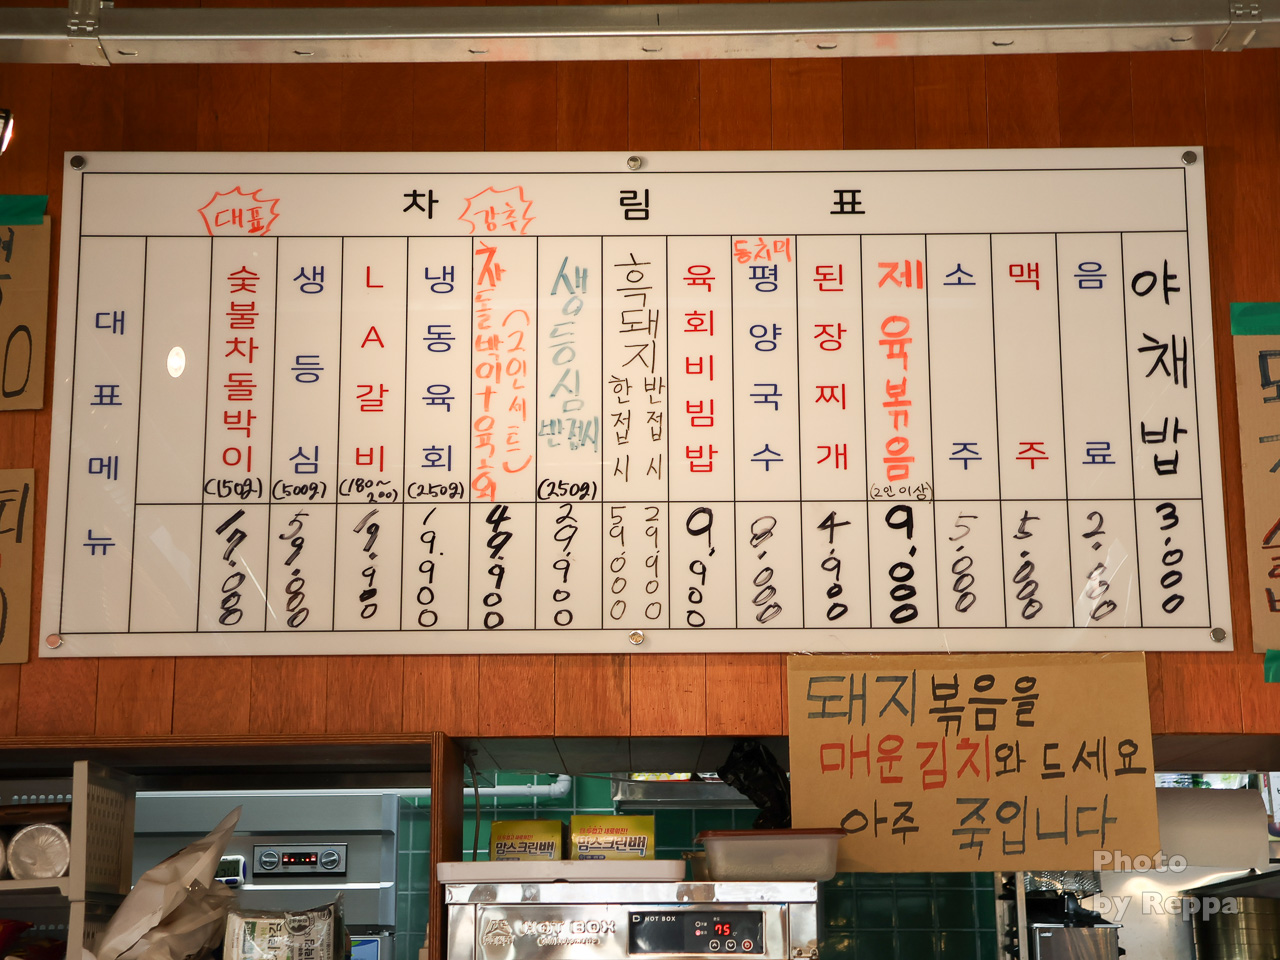 차림표
대표
강추
대표메뉴
숯불차돌박이
(150g)
17.000
생등심
(500g)
59.000
LA갈비
(180~200)
19.900
냉동육회
(250g)
19.900
차돌박이+육회
(2인세트)
49.900
생등심
반접시
(250g)
29.900
흑돼지
한접시
반접시
59.000
29.900
육회비빔밥
9.900
동치미
평양국수
8.000
된장찌개
4.900
제육볶음
(2인이상)
9.000
소주
5.000
맥주
5.000
음료
2.000
야채밥
3.000
돼지볶음을
매운김치와 드세요
아주 죽입니다
맘스크린백
맘스크린백
HOT BOX
HOT BOX
75
Photo
by Reppa